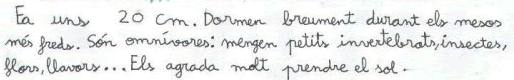 Fa uns 20 cm. Dormen breument durant els mesos
més freds. Són omnívores: mengen petits invertebrats, insectes,
flors, llavors... Els agrada molt prendre el sol.